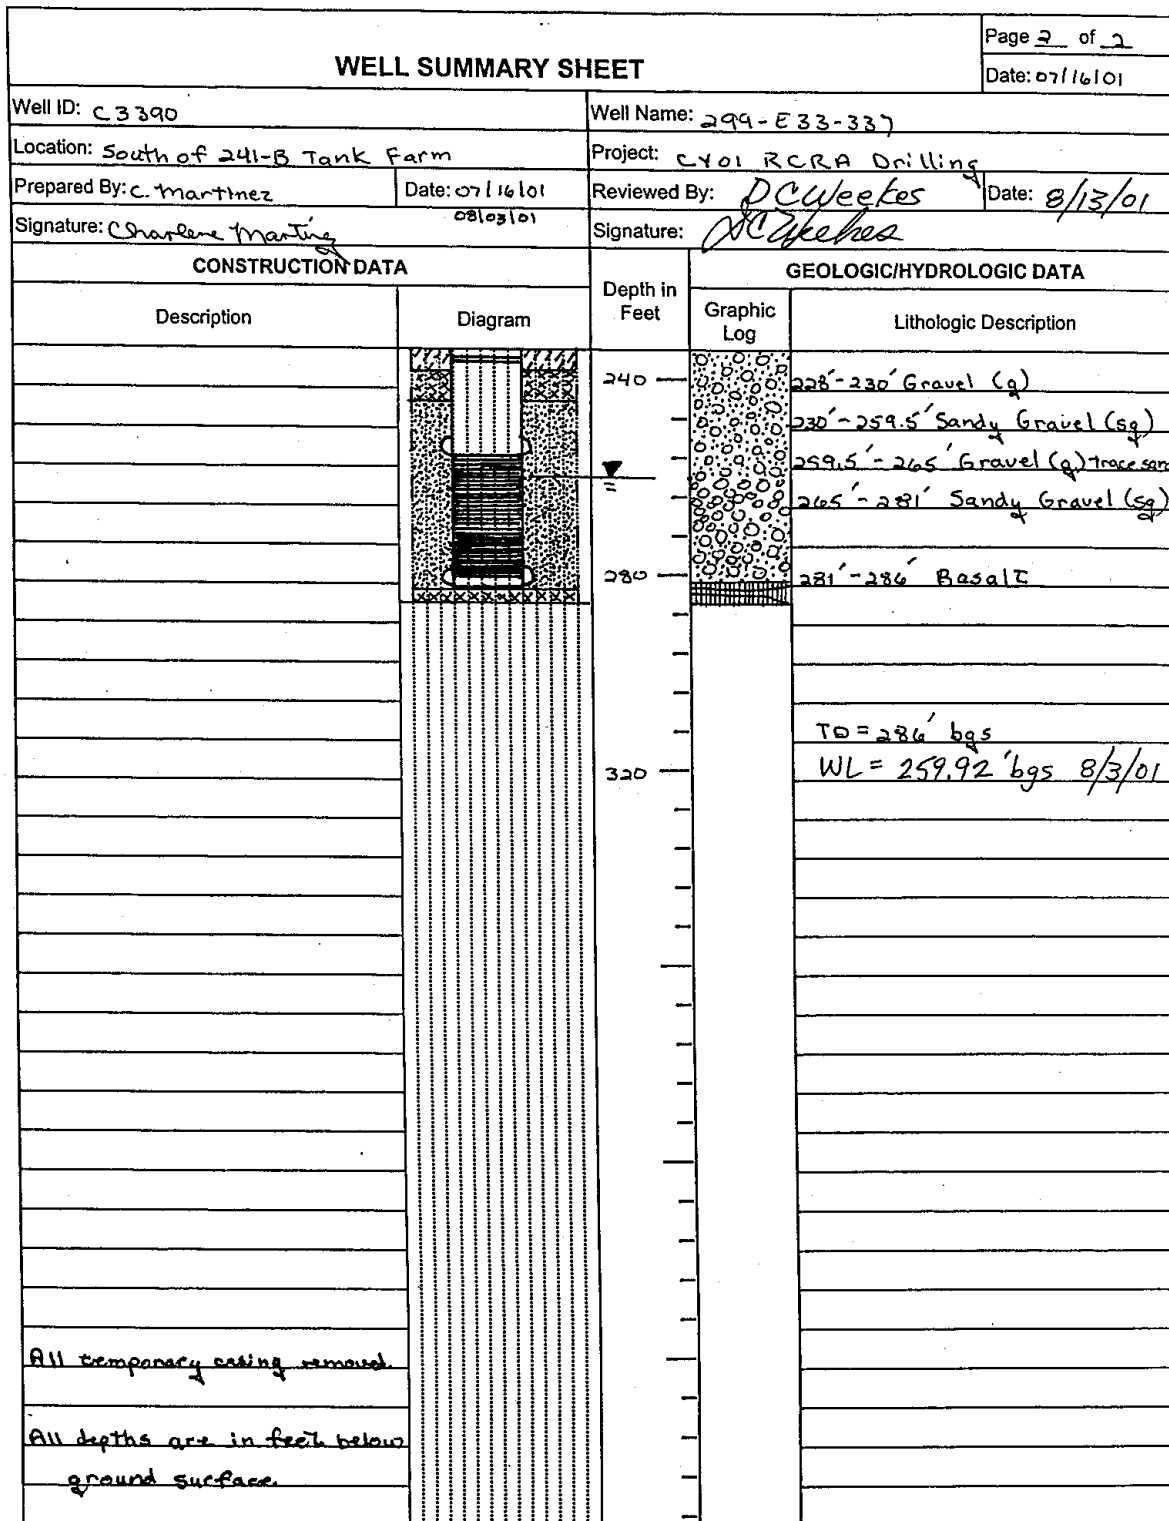 Page 2 of 2
WELL SUMMARY SHEET
Date: 07/16/01
Well ID: C3390
Well Name: 299-E33-337
Location: South of 241-B Tank Farm
Project: CY01 RCRA Drilling
Prepared By: C. Martinez
Date: 07/16/01
08/03/01
Reviewed By: DC Weekes
Date: 8/13/01
Signature: Charlene Martinez
Signature: DC Weekes
CONSTRUCTION DATA
Depth in Feet
GEOLOGIC/HYDROLOGIC DATA
Description
Diagram
Graphic Log
Lithologic Description
240
228'-230' Gravel (g)
230'-259.5' Sandy Gravel (sg)
259.5'-265' Gravel (g) trace sand
265'-281' Sandy Gravel (sg)
280
281'-286' Basalt
TD = 286' bgs
320
WL = 259.92' bgs 8/3/01
All temporary casing removed.
All depths are in feet below
ground surface.